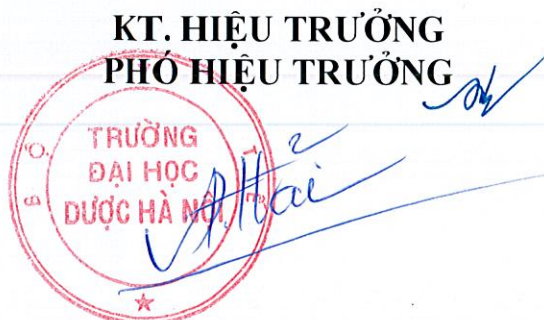 KT. HIỆU TRƯỞNG
PHÓ HIỆU TRƯỞNG
BỘ Y TẾ
TRƯỜNG
ĐẠI HỌC
DƯỢC HÀ NỘI